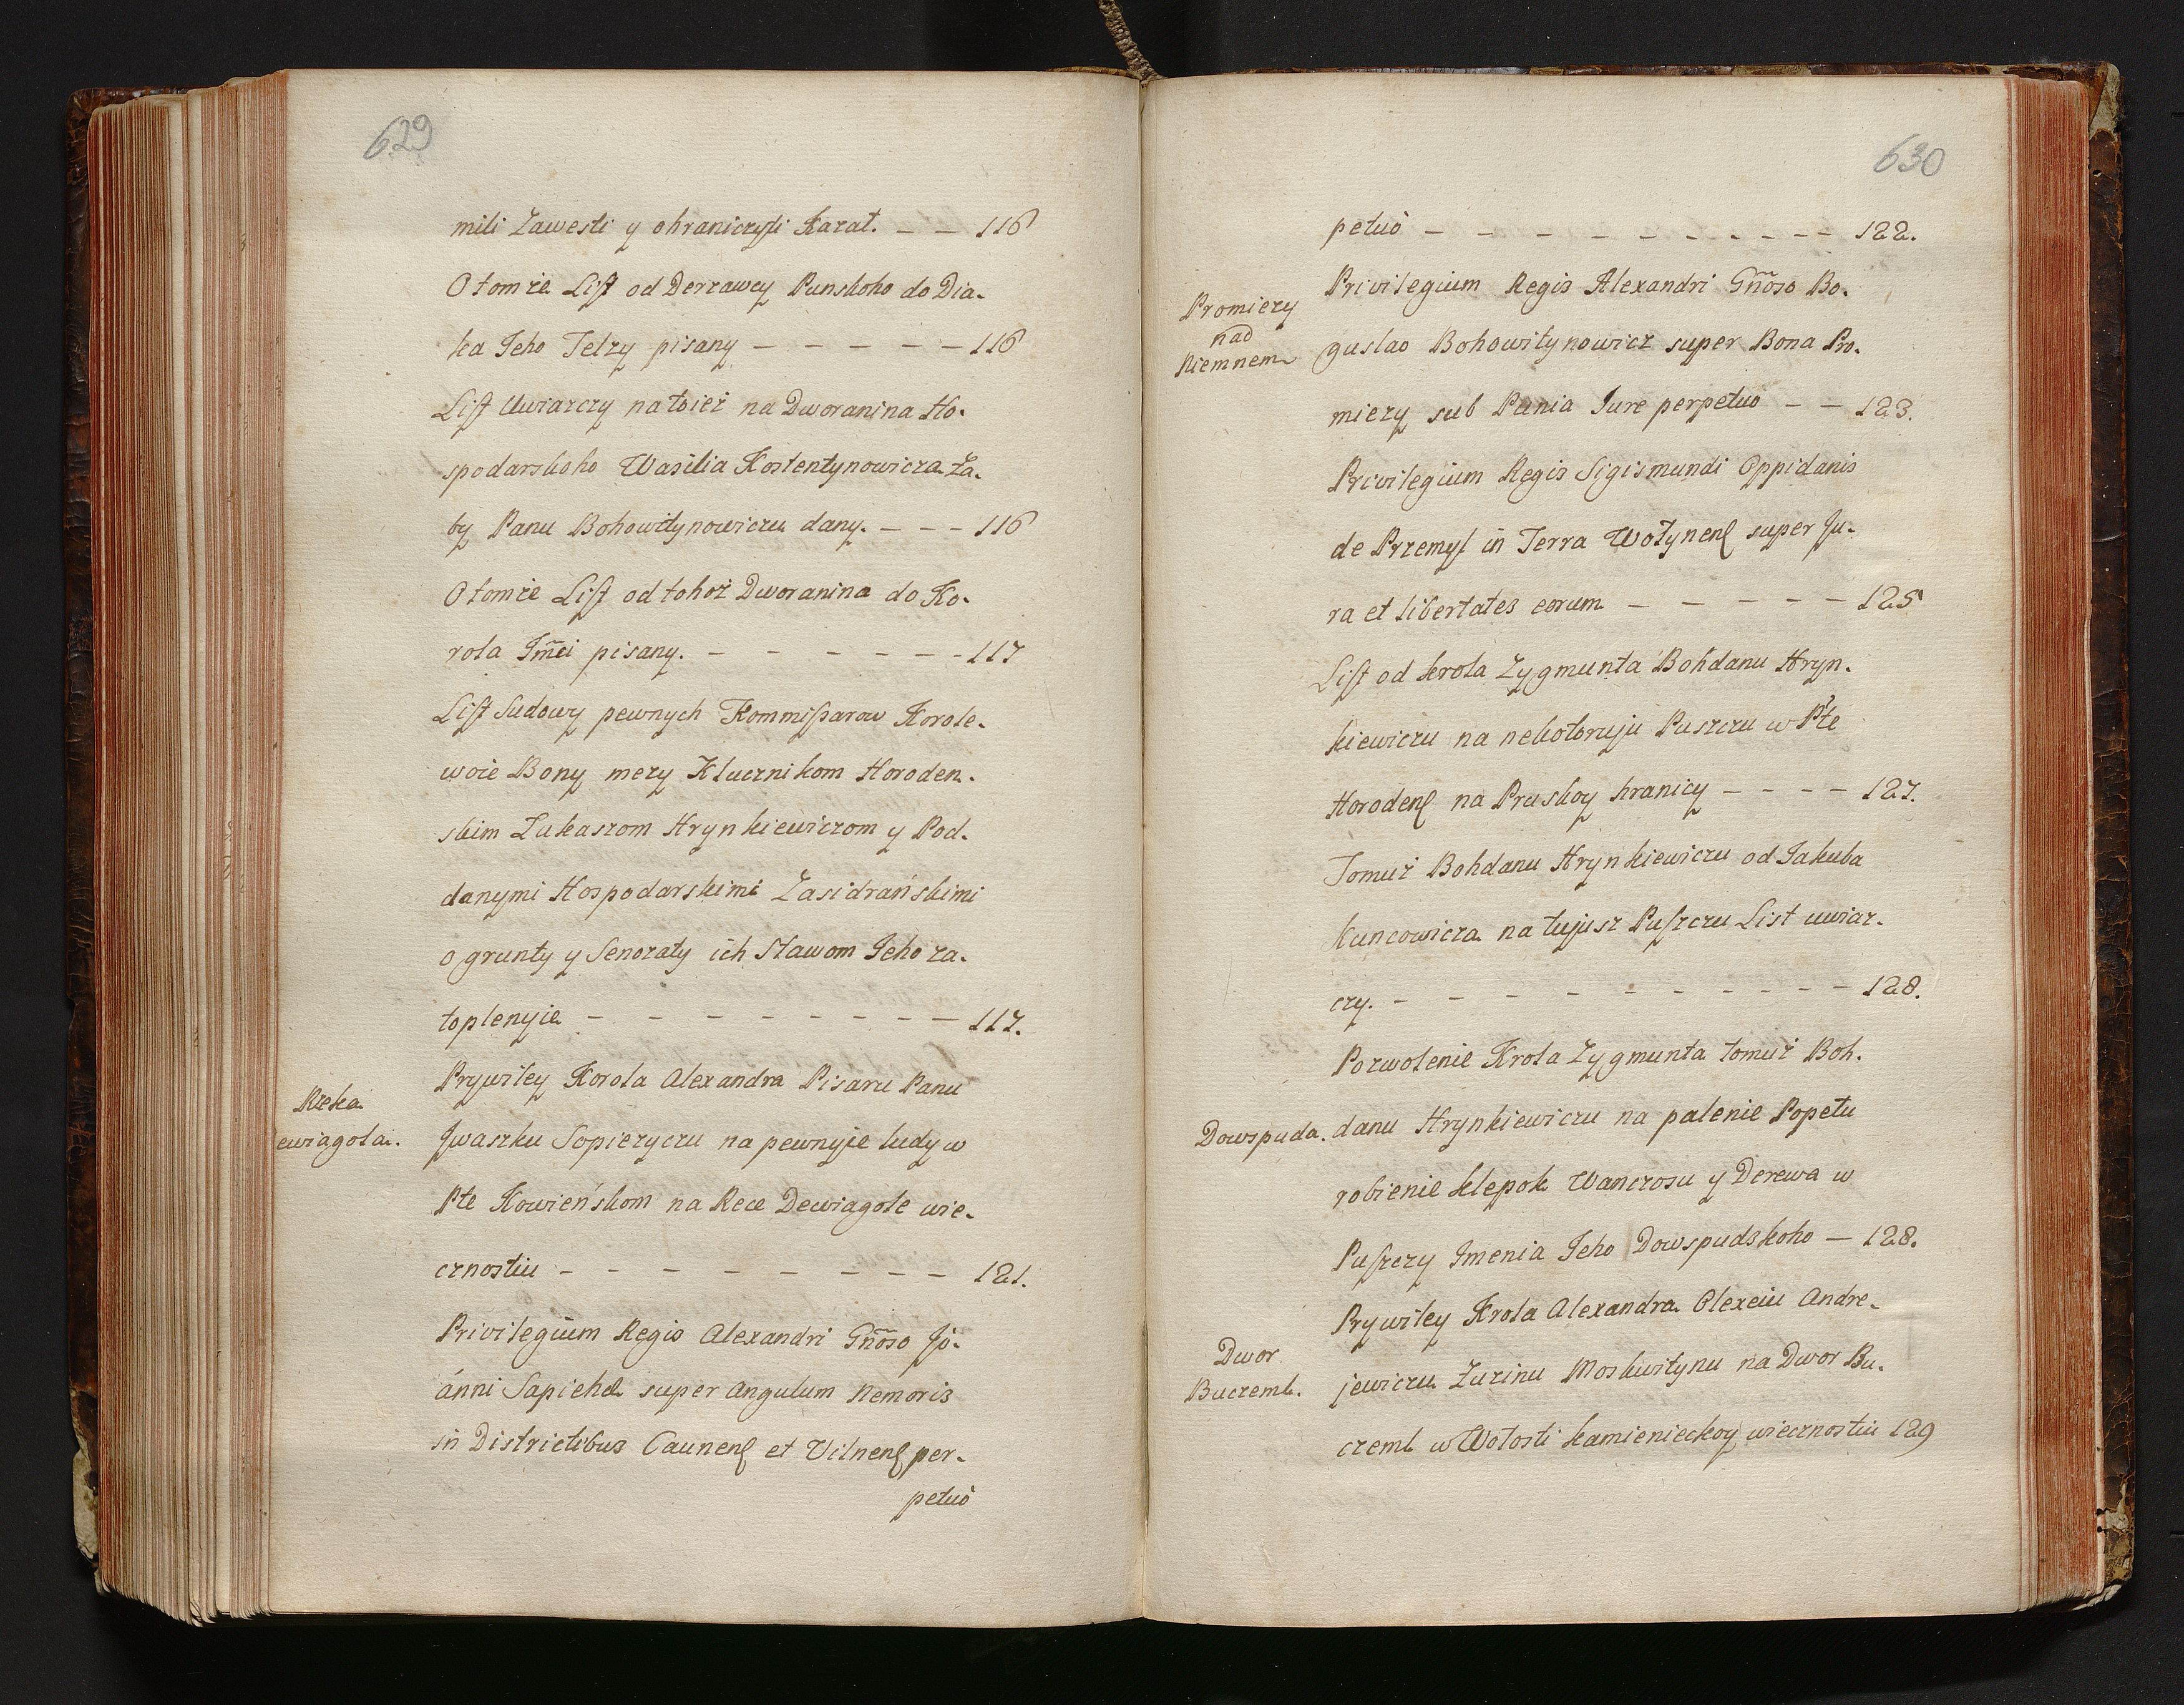 629
mili Zawesti y ohraniczyti Kazał. – – 116
O tomże List od Derzawcy Punskoho do Dia-
ka Jeho Telzy pisany – – – – – 116
List Uwiazczy na toież na Dworanina Ho-
spodarskoho Wasilia Kostentynowicza Za-
by Panu Bohowitynowiczu dany. – – – 116
O tomże List od tohoż Dworanina do Ko-
rola Jm̃ci pisany. – – – – – – 117
List Sudowy pewnych Kommissarow Korole-
woie Bony mezy Klucznikom Horoden-
skim Łukaszom Hrynkiewiczom y Pod-
danymi Hospodarskimi Zasidrańskimi
o grunty y Senozaty ich Stawom Jeho za-
toplenyie – – – – – – – – 117.
Rzeka
ewiagoła.
Prywiley Korola Alexandra Pisaru Panu
Jwaszku Sopiezyczu na pewnyie ludy w
Pt̃e Kowieńskom na Rece Dewiagole wie-
cznostiu – – – – – – – – 121.
Privilegium Regis Alexandri Gñoso Jo-
anni Sapiehæ super Angulum Nemoris
in Districtibus Caunens et Vilnens per-
petuò
630
petuò – – – – – – – – – – 122.
Promiezy
nad
Niemnem
Privilegium Regis Alexandri Gñoso Bo-
guslao Bohowitynowicz super Bona Pro-
miezy sub Punia Jure perpetuo – – 123.
Privilegium Regis Sigismundi Oppidanis
de Przemyl in Terra Wołynens super Ju-
ra et libertates eorum – – – – – 125
List od krola Zygmunta Bohdanu Hryn-
kiewiczu na nekotoruju Puszczu w Pt̃e
Horodens na Pruskoy hranicy – – – – 127.
Tomuż Bohdanu Hrynkiewiczu od Jakuba
Kuncowicza na tujusz Puszczu List uwiaz-
czy. – – – – – – – – – 128.
Pozwolenie Krola Zygmunta tomuż Boh-
Dowspuda.
danu Hrynkiewiczu na palenie Popełu
robienie klepok Wanczosu y Derewa w
Puszczy Jmenia Jeho Dowspudskoho – 128.
Prywiley Krola Alexandra Olexeiu Andre-
Dwor
Buczeml.
jewiczu Zurinu Moskwitynu na Dwor Bu-
czeml w Wołosti kamienieckoy wiecznostiu 129